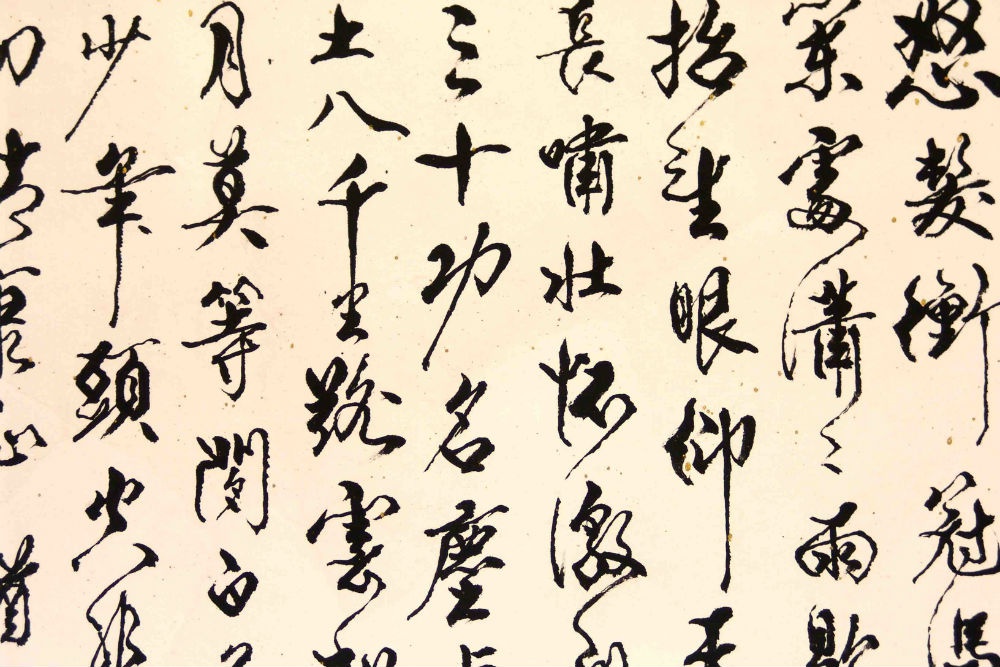 怒髮衝冠馮
欄處瀟〻雨歇
抬望眼仰天
長嘯壯懷激烈
三十功名塵與
土八千里路雲和
月莫等閑白了
少年頭空悲
切靖康恥猶